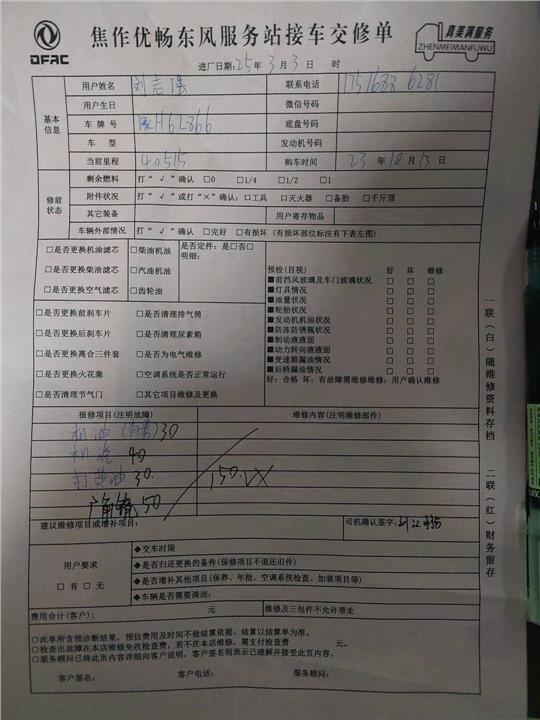 DFAC
焦作优畅东风服务站接车交修单
真美满服务
ZHENMEIMANFUWU
进厂日期:25年3月3日 时
用户姓名 刘志强 联系电话 1751688 6281
用户生日 微信号码
基本信息
车牌号 H6L866 底盘号码
车 型 发动机号码
当前里程 40515 购车时间 23年10月13日
修前状态
剩余燃料 打“√”确认 □0 □1/4 □1/2 □1
附件状况 打“√”或打“×”确认:□工具 □灭火器 □备胎 □千斤顶
其它装备 用户寄存物品
车辆外部情况 打“√”确认 □完好 □有损坏(有损坏部位标注有下表左图)
□是否更换机油滤芯 □柴油机油 是否定件:是□否□
明细:
□是否更换柴油滤芯 □汽油机油
□是否更换空气滤芯 □齿轮油
预检(目视) 好 坏 维修
■前挡风玻璃及车门玻璃状况 □ □ □
■灯具情况 □ □ □
■油量状况 □ □ □
■轮胎状况 □ □ □
■发动机机油状况 □ □ □
■防冻防锈瓶状况 □ □ □
■制动液液面 □ □ □
■动力转向液液面 □ □ □
■变速箱漏油情况 □ □ □
■后桥漏油情况 □ □ □
好:合格 坏:有故障需维修维修:用户确认维修
□是否更换前刹车片 □是否清理排气筒
□是否更换后刹车片 □是否清理尿素箱
□是否更换离合三件套 □是否为电气维修
□是否更换火花塞 □空调系统是否正常运行
□是否清理节气门 □其它项目维修及更换
报修项目(注明故障) 维修内容(注明维修部件)
机油 30
机滤 40
打黄油 30. 150.
50
建议维修项目或增补项目: 司机确认签字:
用户要求
□有 □无
◆交车时限
◆是否归还更换的备件(保修项目不退还旧件)
◆是否增补其他项目(保养、年检、空调系统检查、加装项目等)
◆车辆是否需要清洁:
费用合计(客户): 元 维修及三包件不允许带走
○此单所含预诊断结果,预估费用及时间不做结算依据,结算以结算单为准。
○检查出故障在本店维修免收检查费,若不在本店维修,需支付检查费 元。
○服务顾问已将此页内容详细向客户说明,客户签名则表示已理解并接受此页内容。
客户签名: 客户电话: 服务顾问:
一联(白)随维修资料存档
二联(红)财务留存